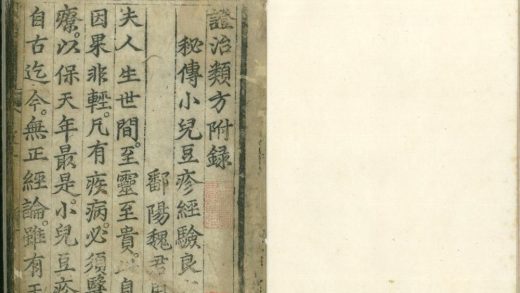 證治類方附録
秘傳小兒豆疹經驗良
鄱陽魏君用
夫人生世間。至靈至貴。自
因果非輕。凡有疾病。必須醫
療。以保天年最是。小兒豆疹
自古迄今。無正經論。雖有